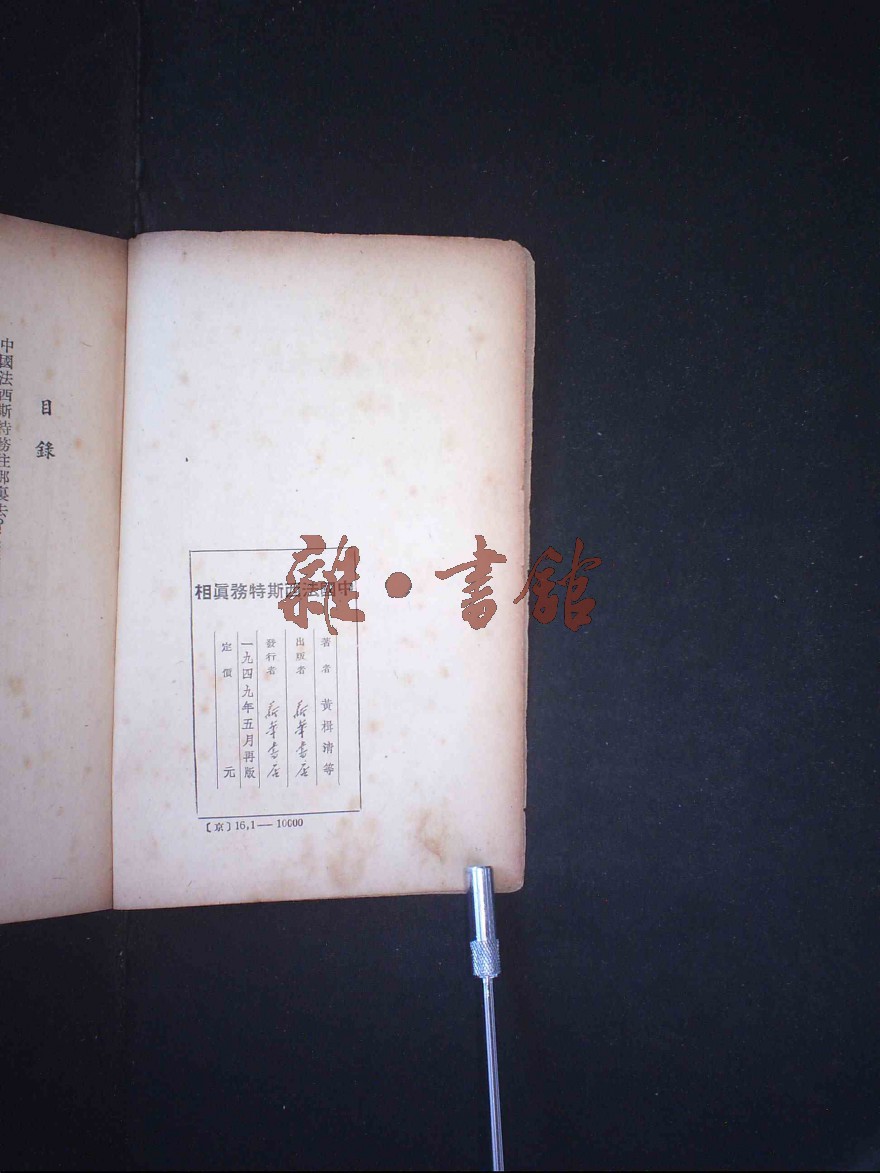 中國法西斯特務眞相
著者 黃楫清等
出版者 新華書店
發行者 新華書店
一九四九年五月再版
定價 元
〔京〕16,1—10000
目錄
中國法西斯特務往那裏去?
雜·書館